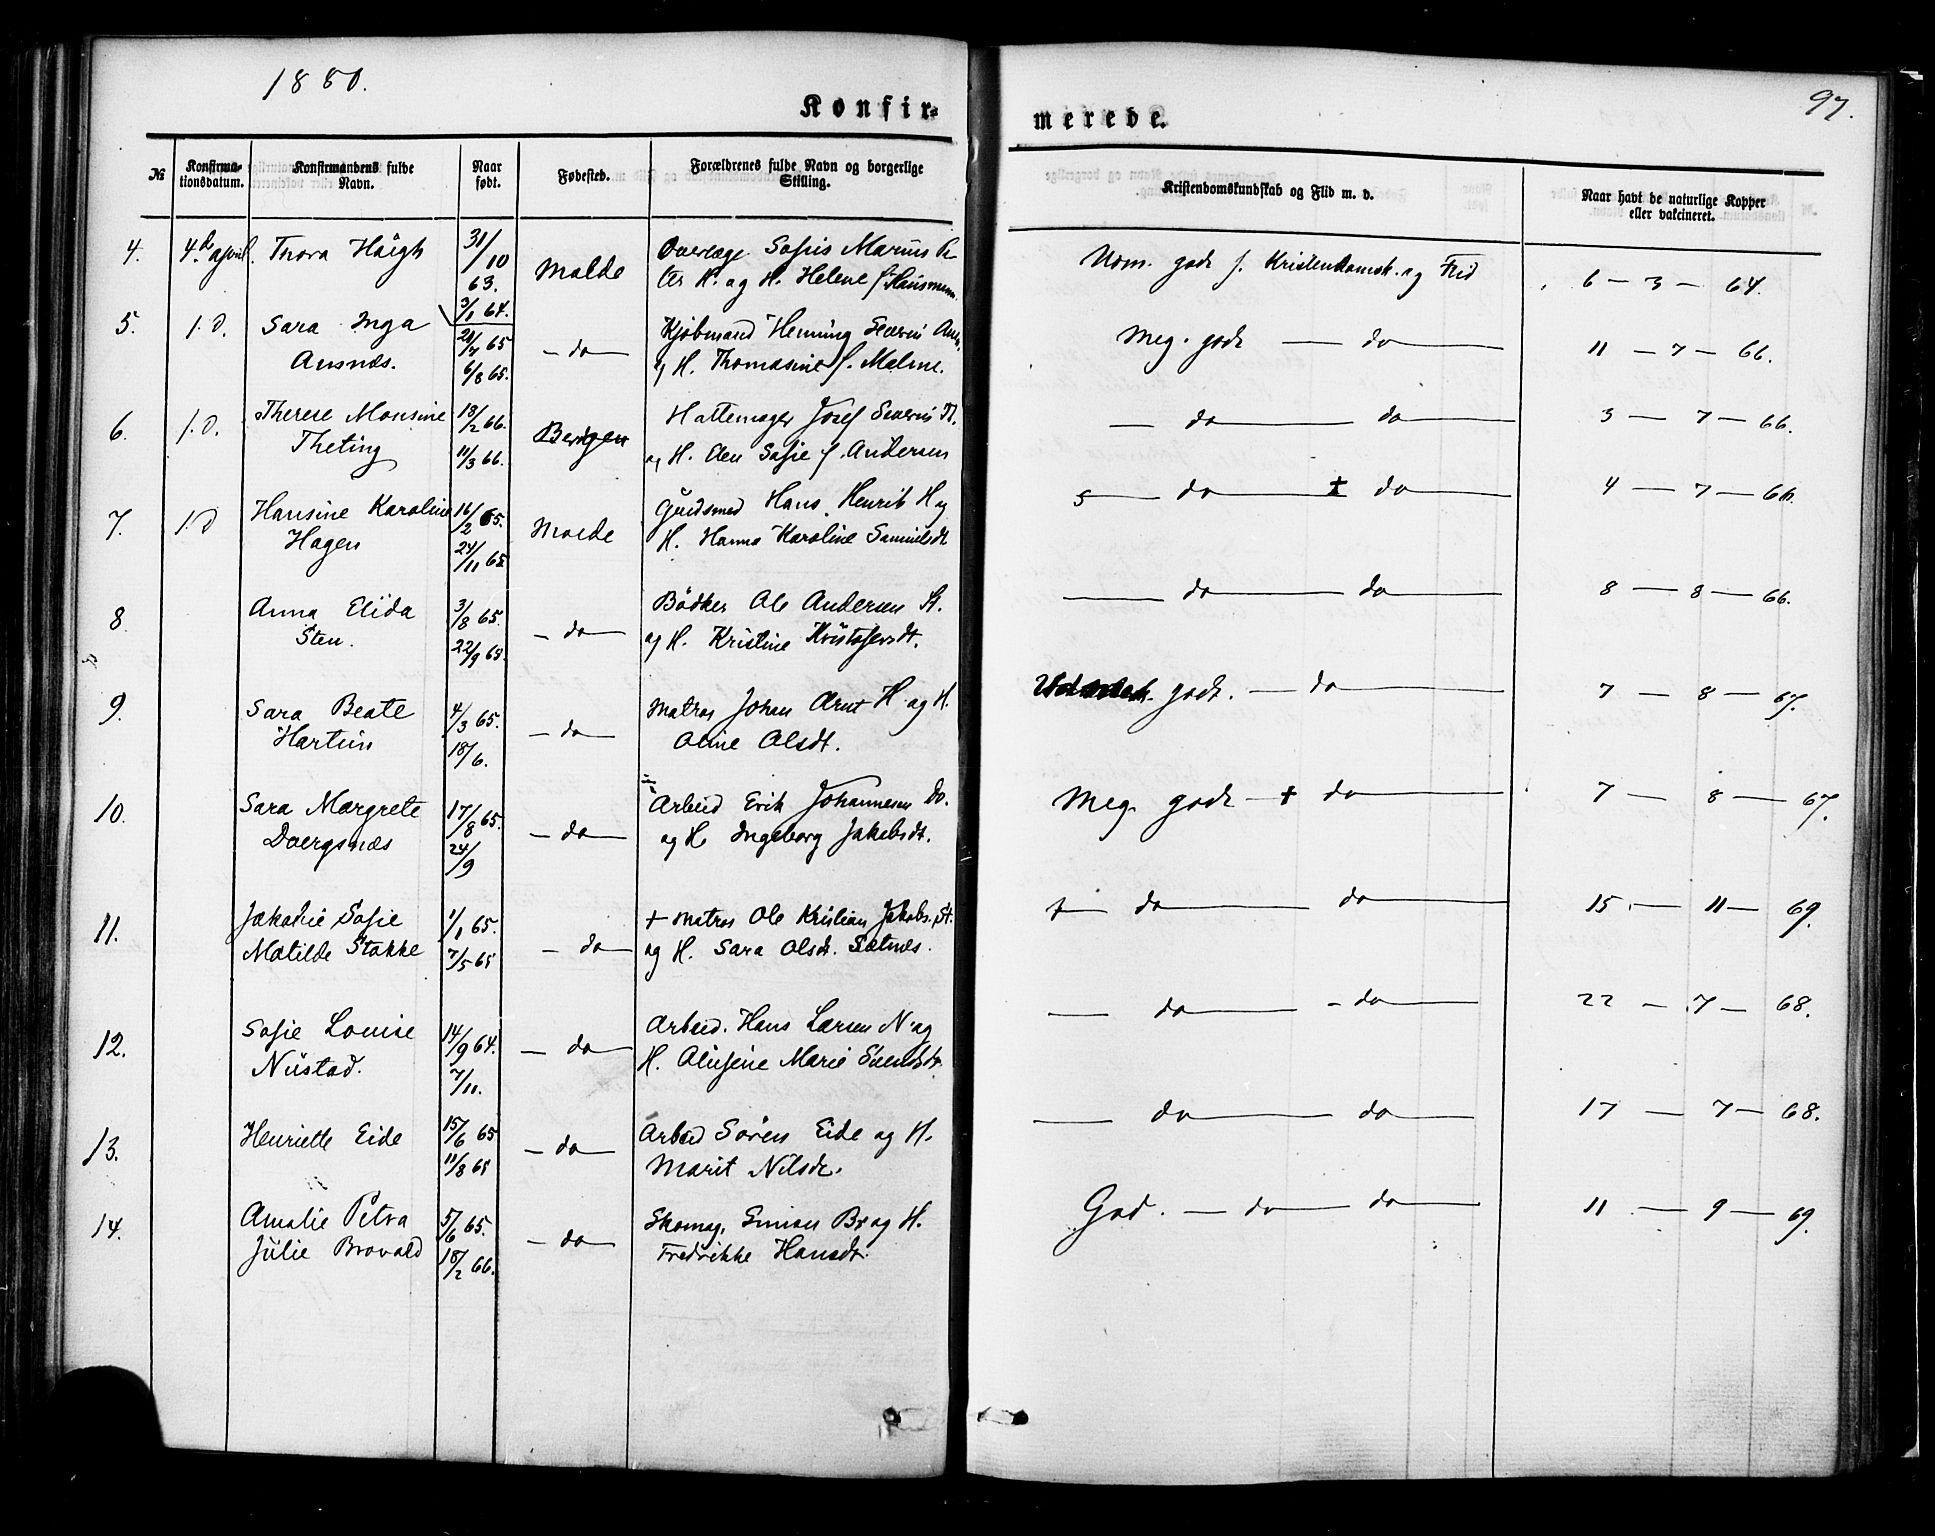 1880.
97.
Konfir-
merede.
№
Konfirma-
tionsdatum.
Konfirmandens fulde
Navn.
Naar
født.
Fødested.
Forældrenes fulde Navn og borgerlige
Stilling.
Kristendomskundskab og Flid m. v.
Naar havt de naturlige Kopper
eller vakcineret.
4. 4.d april. Thora Høigh 31/10 63. Molde
3/1 64.
og H. Helene f. Hausmann
godt f. Kristendomsk. og Flid 6 – 3 – 64.
5. 1.D. Sara Inga
Ausnæs. 21/7 65 6/8 65. – do – Kjøbmand Henning Severin
og H. Thomasine f. Malme.
Meg. godt – do – 11 – 7 – 66.
6. 1.D. Therese Monsine
Theting 18/2 66. 11/3 66. Bergen Hattemager Josef Severin T.
og H. Sofie f. Andersen
– do – do – 3 – 7 – 66.
7. 1.D Hansine Karoline
Hagen 16/2 65. 24/11 65 Molde Guldsmed Hans Henrik H og
H. Hanna Karoline Samuelsdt
do – do – 4 – 7 – 66.
8. Anna Elida
Sten. 3/8 65. 22/9 65. – do – Bødker Ole Andersen St.
og H. Kristine Kristofersdt.
– do – do – 8 – 8 – 66.
9. Sara Beate
4/3 65. 18/6. – do – Matros Johan Arnt H. og H.
Oline Olsdt.
godt. – do – 7 – 8 – 67.
10. Sara Margrete
Dvergsnæs 17/8 65. 24/9 – do – Arbeid Erik Johannesen Dv.
og H. Ingeborg Jakobsdt.
Meg. godt – + do – 7 – 8 – 67.
11. Sofie
Matilde Stokke 1/1 65. 7/5 65 – do – + Matros Ole Kristian Jakobs. St.
og H. Sara Olsdt. Sætnes.
do – do – 15 – 11 – 69.
12. Sofie Louise
Nustad. 14/9 64. 7/11. – do – Arbeid. Hans Larsen N. og
H. Marie
– do – do – 22 – 7 – 68.
13. Henriette Eide 15/6 65 11/8 65 – do – Arbeid Søren Eide og H.
Marit Nilsdt.
– do – do – 17 – 7 – 68.
14. Amalie Petra
Julie Brovold 5/6 65. 18/2 66. – do – Skomag. Simon Br og H.
Fredrikke Hansdt.
God. – do – do – 11 – 9 – 69.